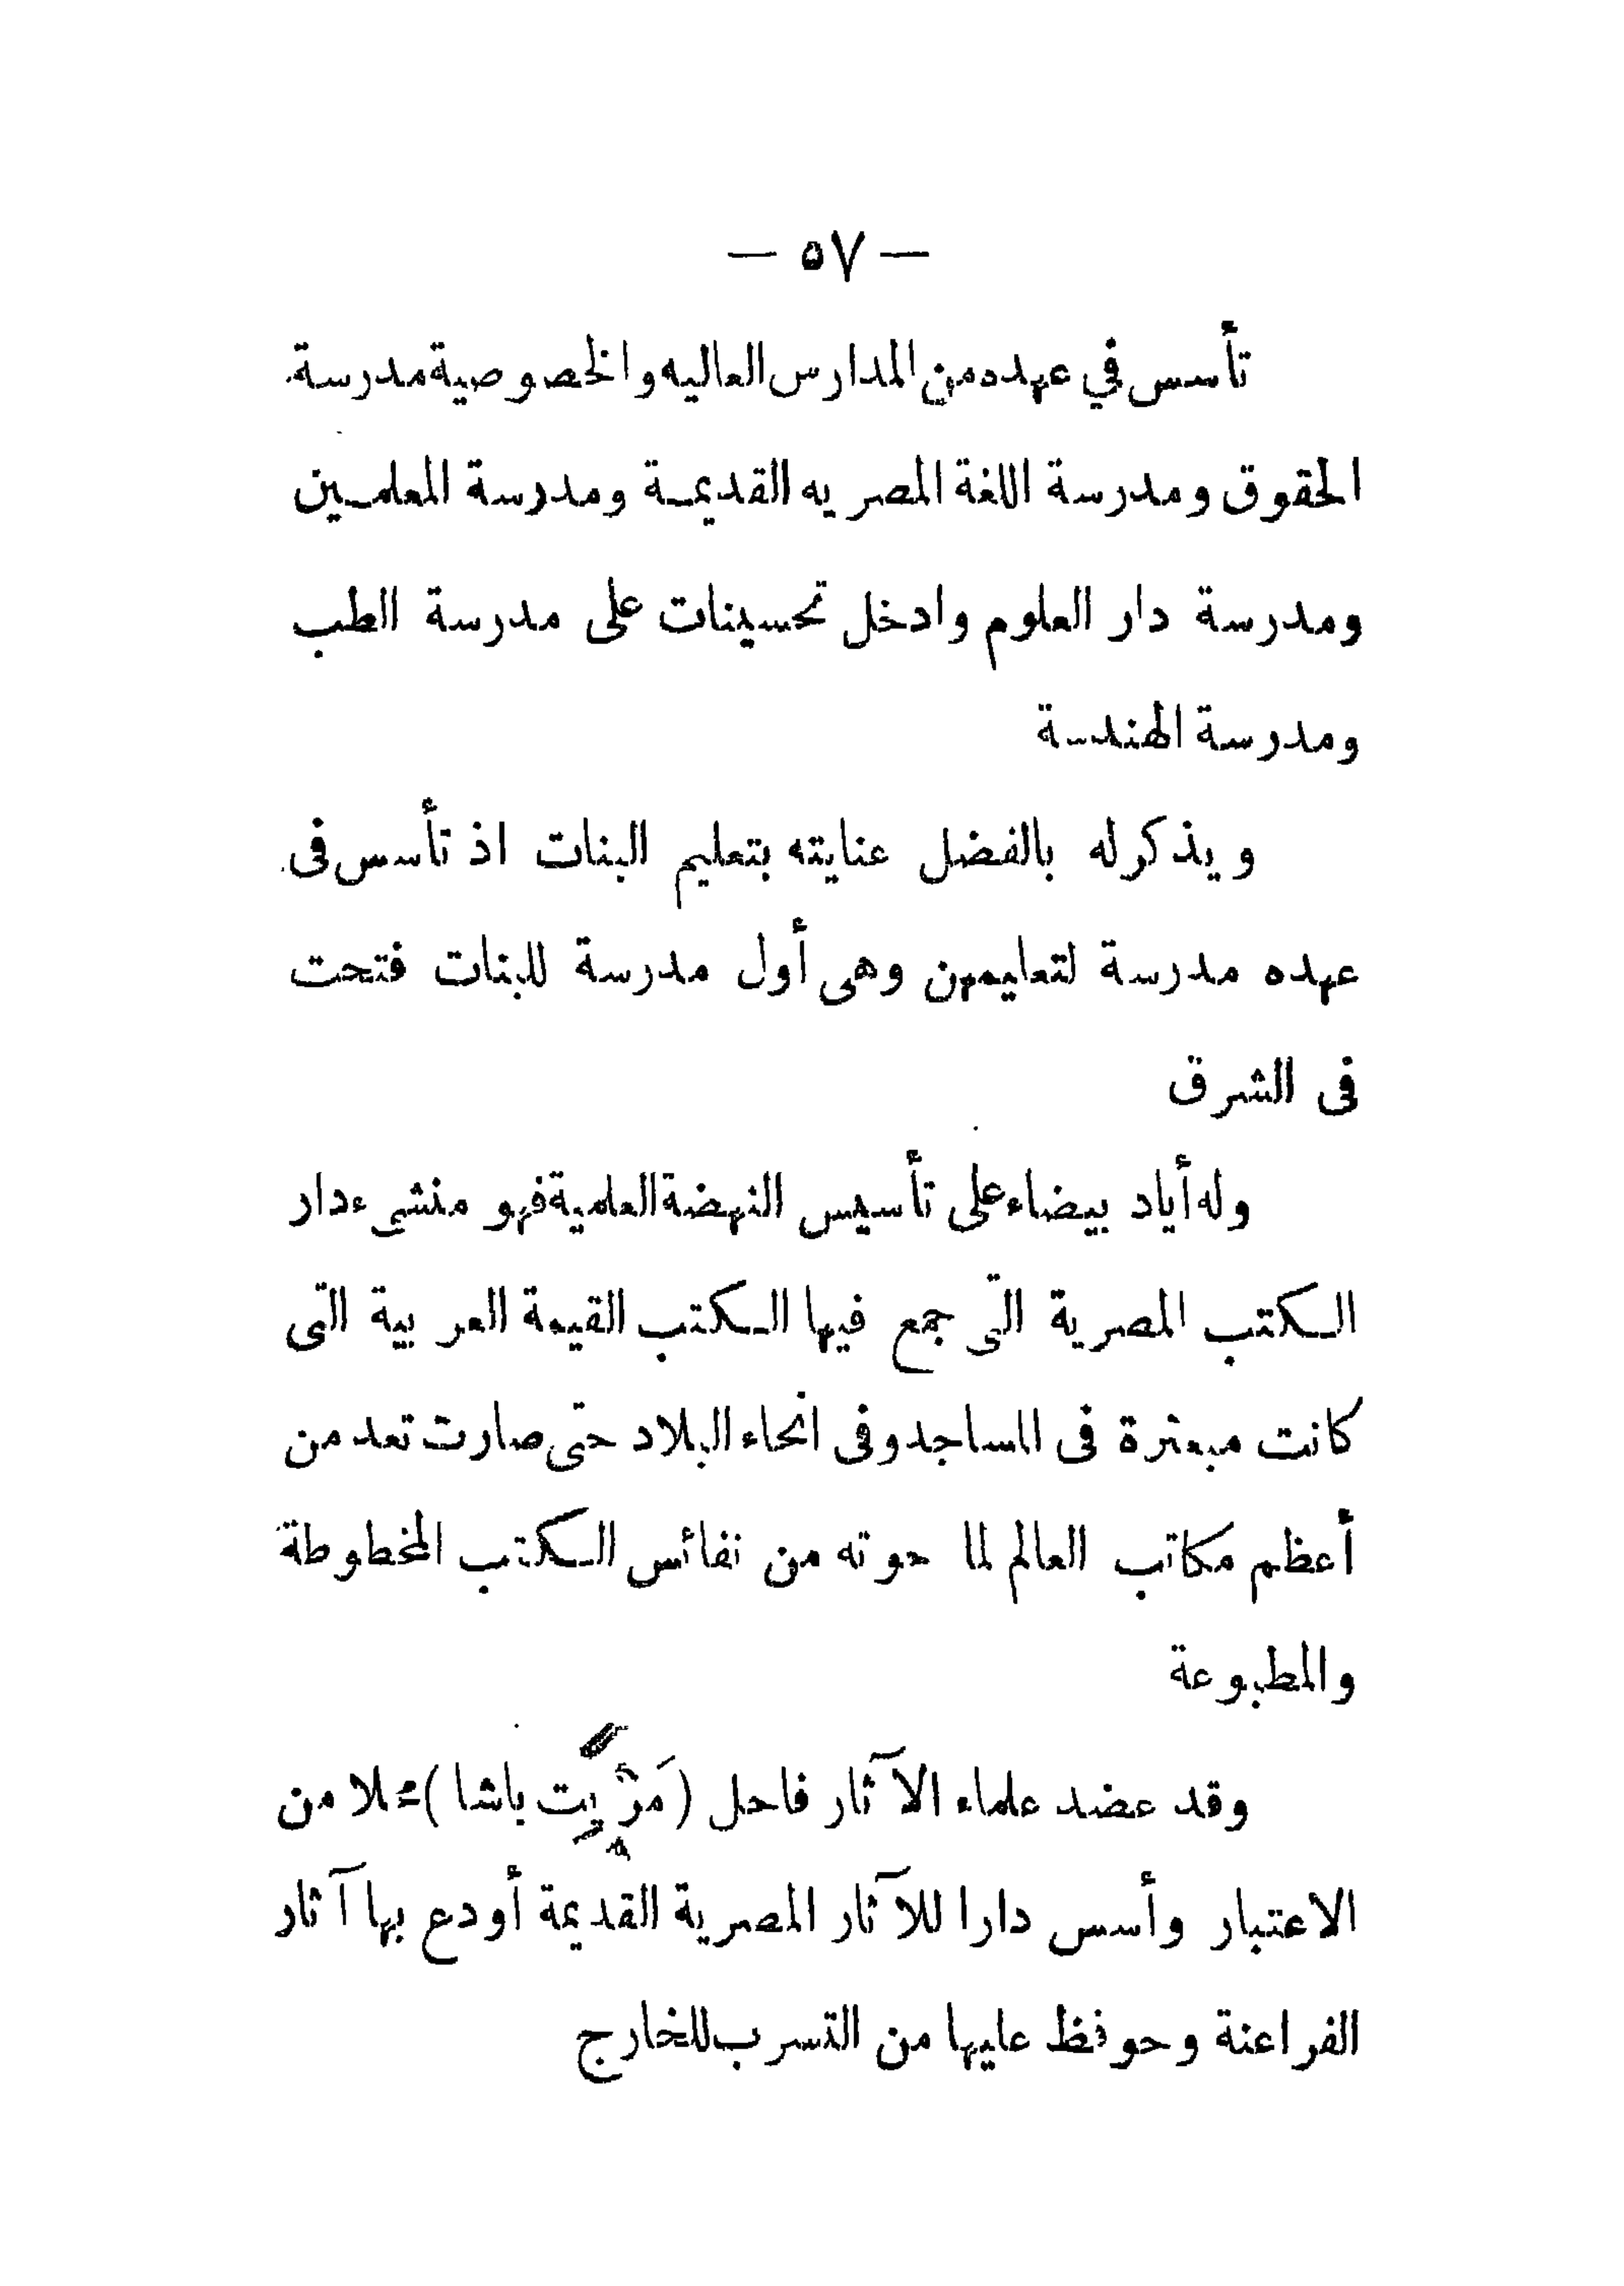 — ٥٧ —
تأسس في عهده من المدارس العاليه والخصوصية مدرسة
الحقوق ومدرسة اللغة المصريه القديمة ومدرسة المعلمين
ومدرسة دار العلوم وادخل تحسينات على مدرسة الطب
ومدرسة الهندسة
ويذكر له بالفضل عنايته بتعليم البنات اذ تأسس فى
عهده مدرسة لتعليمهن وهى أول مدرسة للبنات فتحت
فى الشرق
وله أياد بيضاء على تأسيس النهضة العلمية فهو منشىء دار
الكتب المصرية التى جمع فيها الكتب القيمة العربية التى
كانت مبعثرة فى المساجد وفى انحاء البلاد حتى صارت تعد من
أعظم مكاتب العالم لما حوته من نفائس الكتب المخطوطة
والمطبوعة
وقد عضد علماء الآثار فاحل (مَرْيِت باشا) محلا من
الاعتبار وأسس دارا للآثار المصرية القديمة أودع بها آثار
الفراعنة وحوفظ عليها من التسرب للخارج